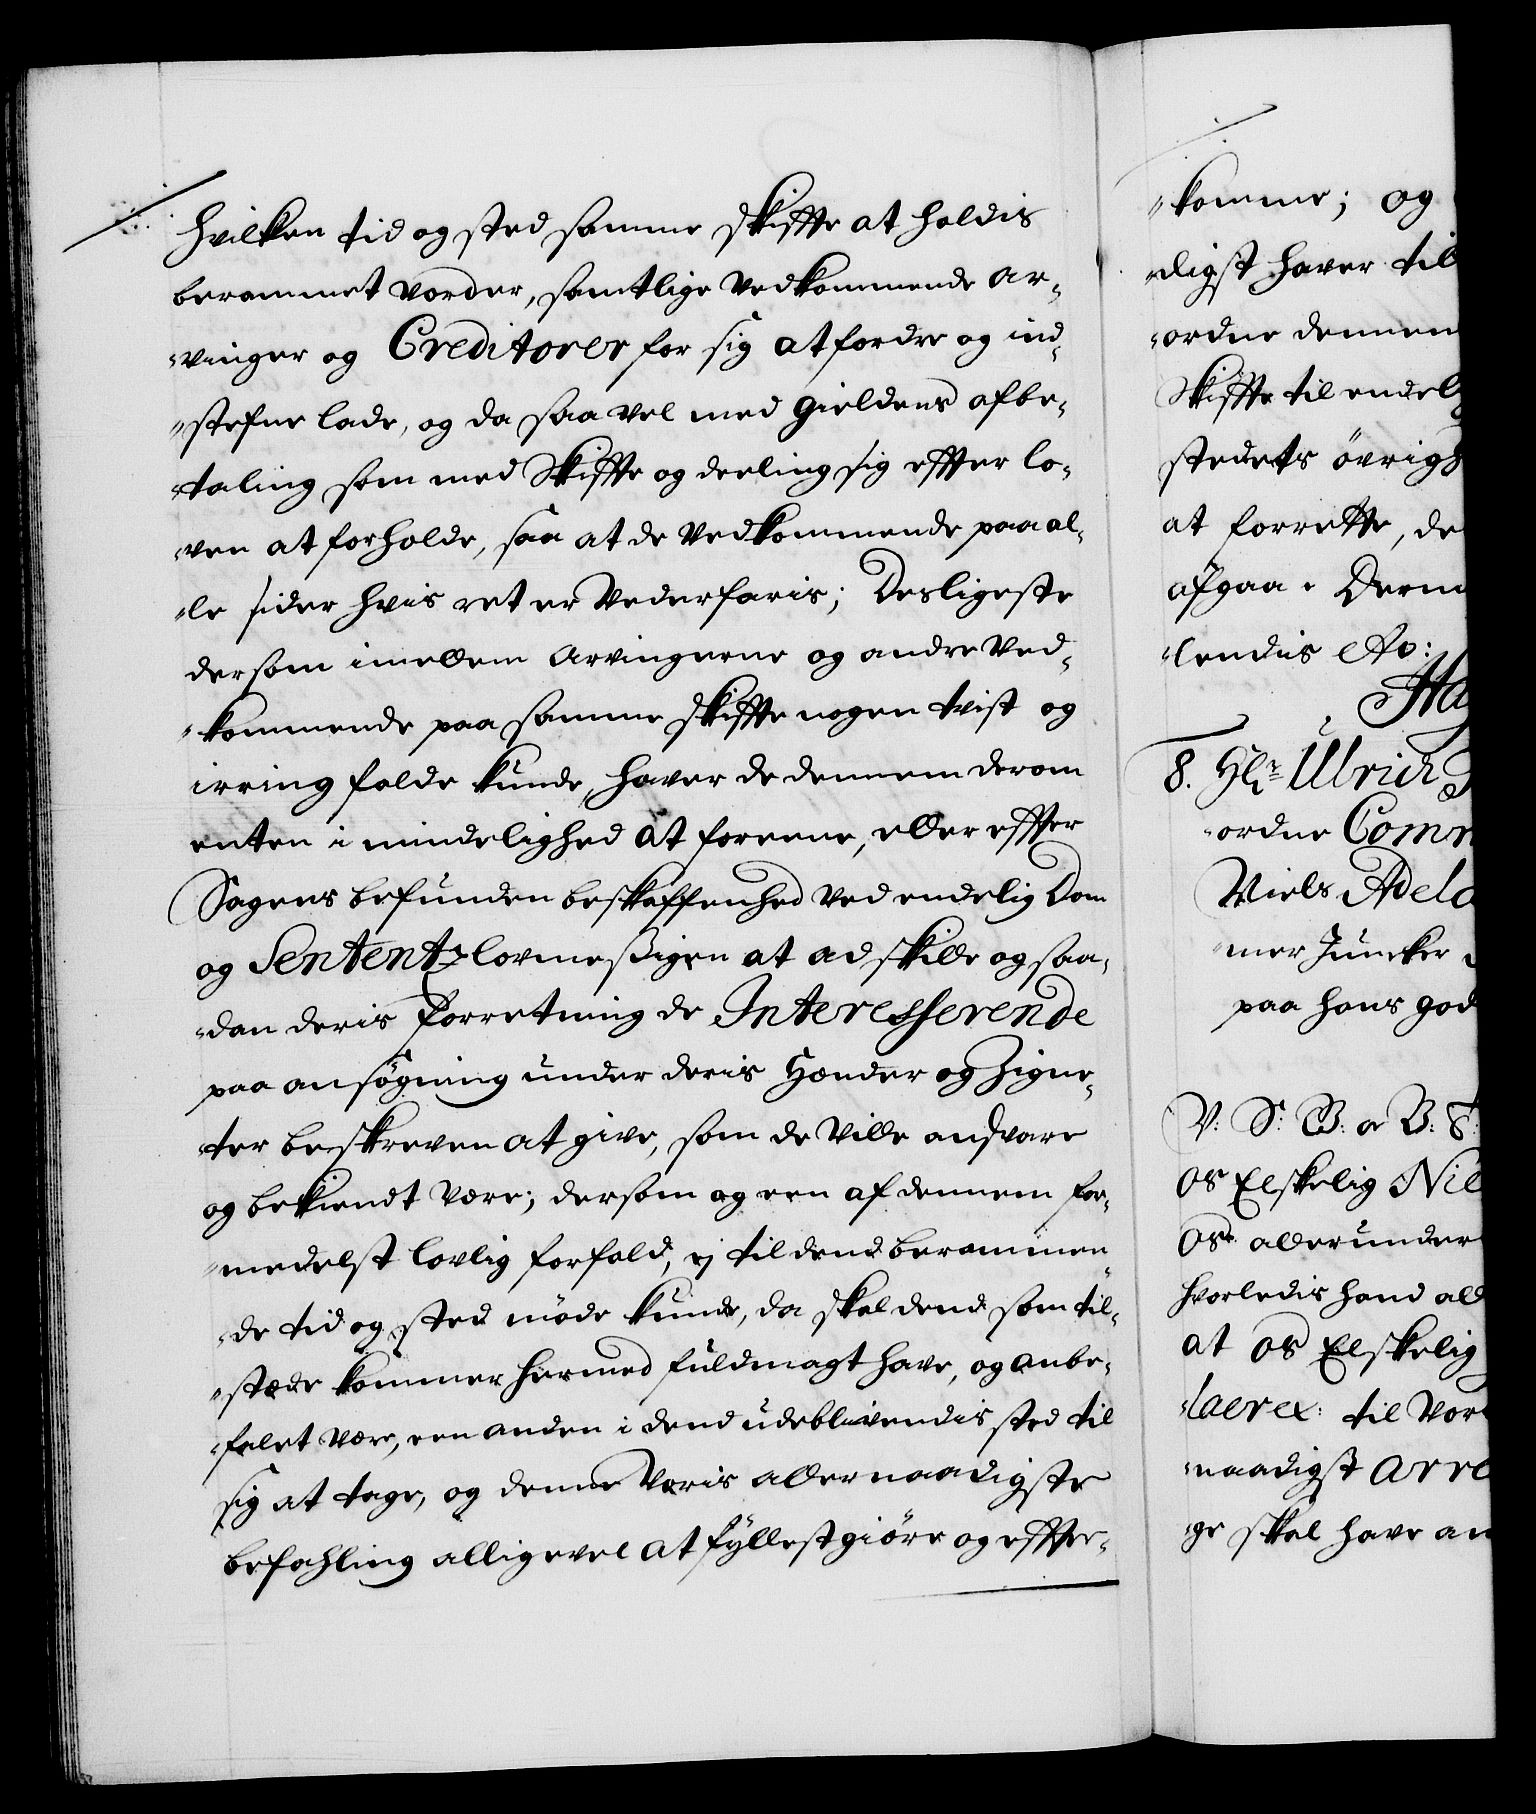 hvilken tid og sted samme skiffte at holdis
berammet vorder, samtlige vedkommende ar-
vinger og Creditorer for sig at fordre og ind-
stefne lade, og da saa vel med gieldens afbe-
taling som med skiffte og deeling sig effter lo-
ven at forholde, saa at de vedkommende paa al-
le sider hvis ret er vederfaris; Desligeste
dersom imellem arvingerne og andre ved-
kommende paa samme skiffte nogen tvist og
irring falde kunde, haver de dennem derom
enten i mindelighed at foreene, eller effter
Sagens befunden beskaffenhed ved endelig Dom
og Sententz lovmeßigen at adskille og saa-
dan deris forretning de Interesserende
paa ansøgning under deris Hænder og Zigne-
ter beskreven at give, som de ville andsvare
og bekiendt være; dersom og een af dennem for-
medelst lovlig forfald, ej til dend berammen-
de tid og sted møde kunde, da skal dend som til-
stæde kommer hermed fuldmagt have, og anbe-
falet være, een anden i dend udeblivendis sted til
sig at tage, og denne voris allernaadigste
befahling alligevel at fyllestgiøre og effter-
komme; og
digst haver til
ordne dennem
Skiffte til endel
stedets øvrigh
at forrette, de
afgaa. Derm
lendis etc:
Ha
8. Hr Ulrich
ordne Comm
Niels Adel
mer Juncker
paa hans god
V: S: B: a B: T:
os Elskelig Nil
Os allerunder
hvorledis hand all
at os Elskelig
laer ex: til vor
naadigst arre
ge skal have an